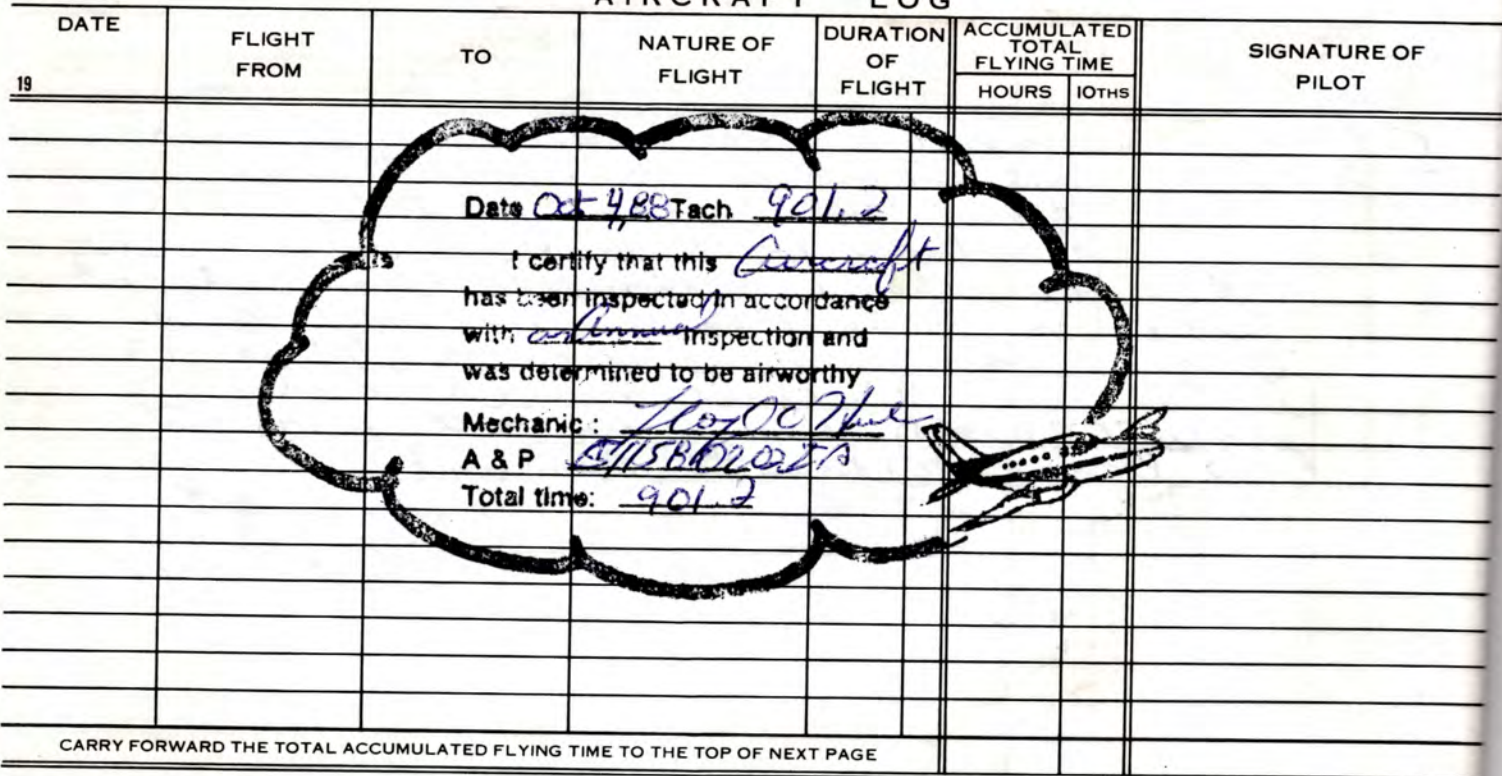 AIRCRAFT LOG
DATE
19
FLIGHT
FROM
TO
NATURE OF
FLIGHT
DURATION
OF
FLIGHT
ACCUMULATED
TOTAL
FLYING TIME
HOURS
10THS
SIGNATURE OF
PILOT
Date Oct 4, 88 Tach 901.2
I certify that this Aircraft
has been inspected in accordance
with an Annual inspection and
was determined to be airworthy
Mechanic:
A & P
Total time: 901.2
CARRY FORWARD THE TOTAL ACCUMULATED FLYING TIME TO THE TOP OF NEXT PAGE